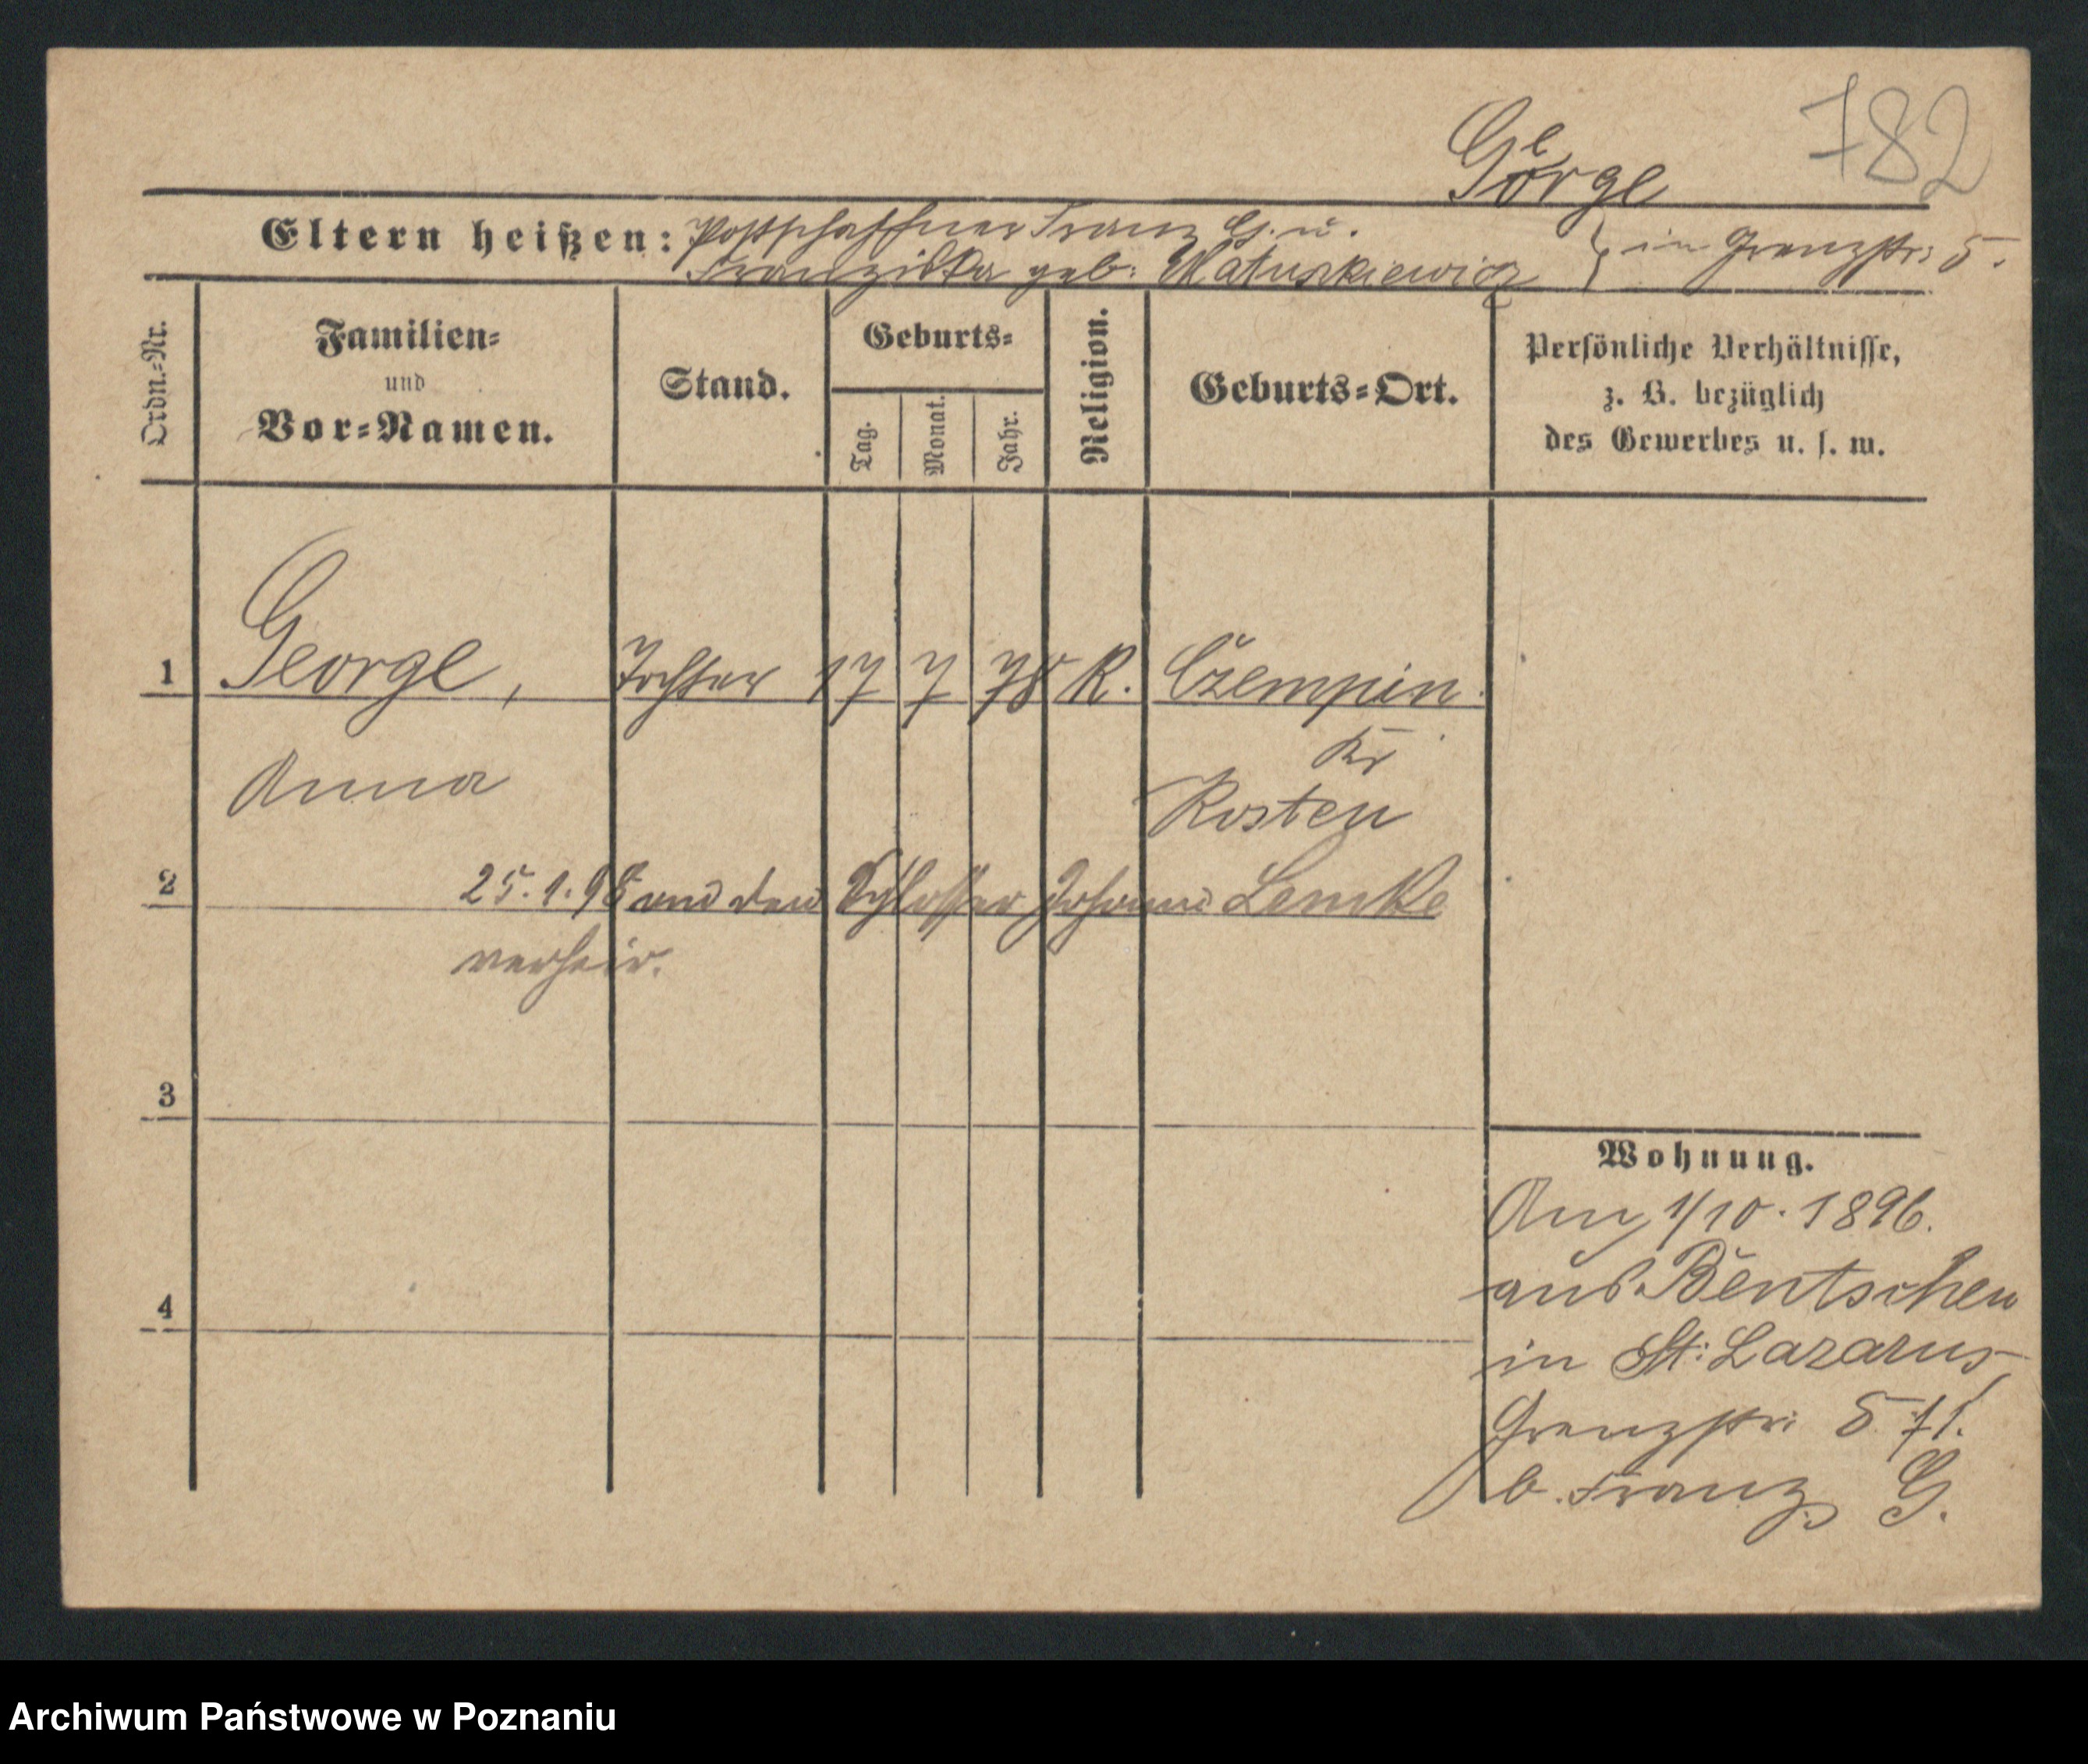 782
George
Eltern heißen: Postschaffner Franz G. u.
Franziska geb: Matuszkiewicz } in Grenzstr: 5.
Ordn.-Nr.
Familien-
und
Vor-Namen.
Stand.
Geburts-
Tag.
Monat.
Jahr.
Religion.
Geburts-Ort.
Persönliche Verhältnisse,
z. B. bezüglich
des Gewerbes u. s. w.
1 George, Tochter 17 7 78 K. Czempin.
Kr
Anna Kosten
2 25.1.98 den Schlosser Johann Lemke
verheir.
3
Wohnung.
Am 1/10.1896.
aus Bentschen
4
in St: Lazarus,
Grenzstr: 5
b. Franz G.
Archiwum Państwowe w Poznaniu